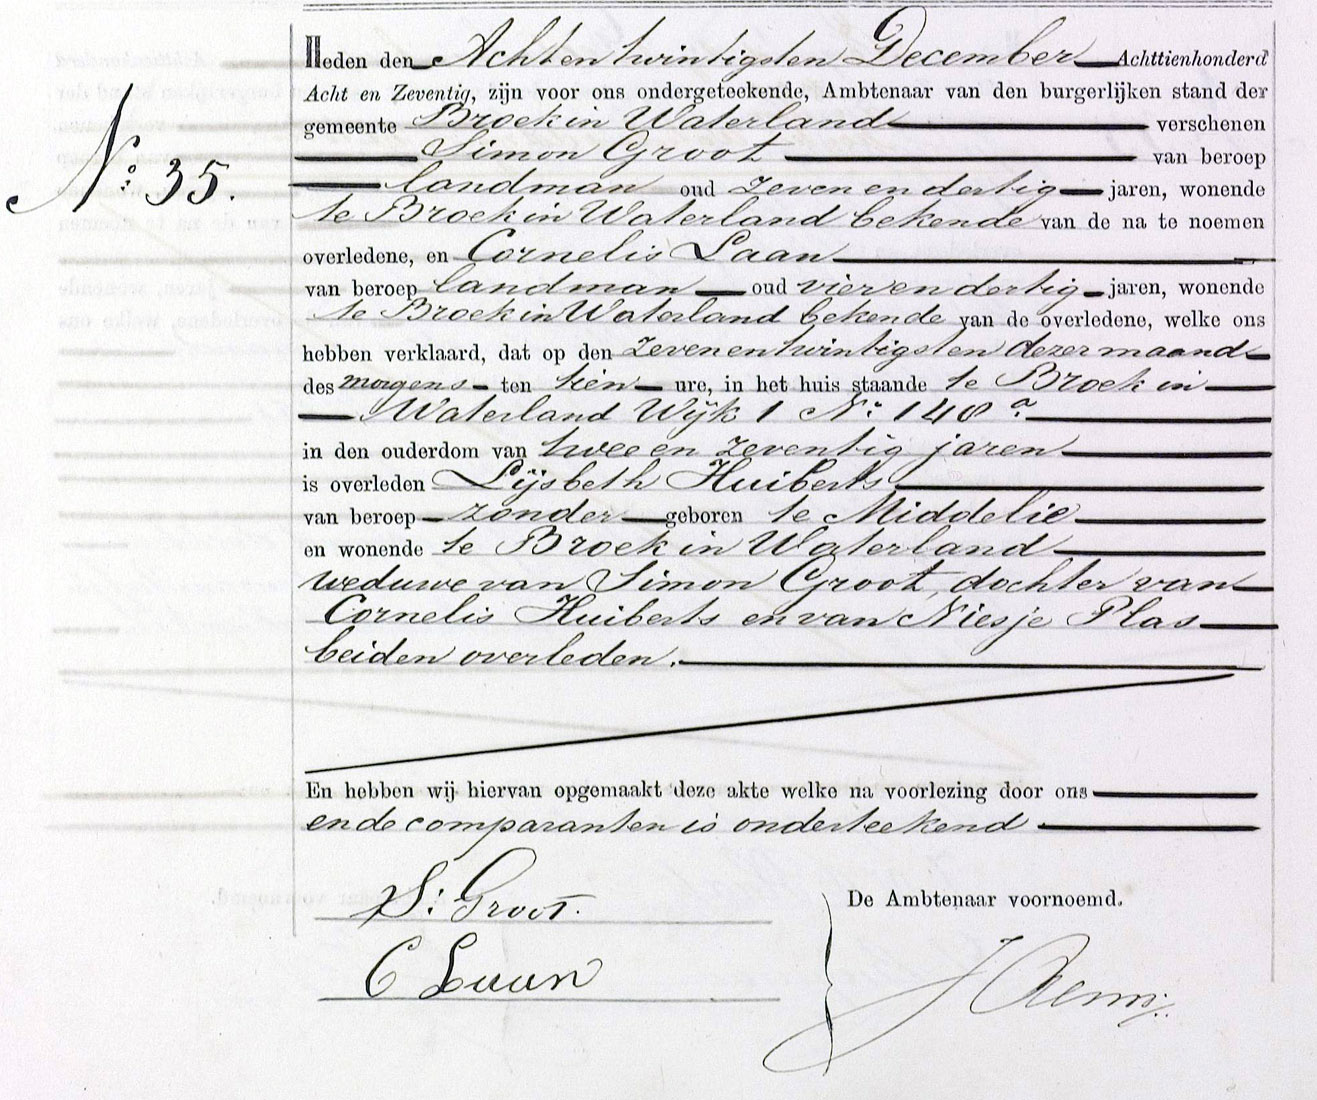 Heden den Achtentwintigsten December Achttienhonderd
Acht en Zeventig, zijn voor ons ondergeteekende, Ambtenaar van den burgerlijken stand der
gemeente Broek in Waterland verschenen
Simon Groot van beroep
No: 35.
landman oud zeven en dertig jaren, wonende
te Broek in Waterland bekende van de na te noemen
overledene, en Cornelis Laan
van beroep landman oud vier en dertig jaren, wonende
te Broek in Waterland bekende van de overledene, welke ons
hebben verklaard, dat op den zevenentwintigsten dezer maand
des morgens ten tien ure, in het huis staande te Broek in
Waterland Wijk 1 No: 148a
in den ouderdom van twee en zeventig jaren
is overleden Lijsbeth Huiberts
van beroep zonder geboren te Middelie
en wonende te Broek in Waterland
weduwe van Simon Groot, dochter van
Cornelis Huiberts en van Niesje Plas
beiden overleden.
En hebben wij hiervan opgemaakt deze akte welke na voorlezing door ons
en de comparanten is onderteekend
S: Groot.
De Ambtenaar voornoemd.
C Laan